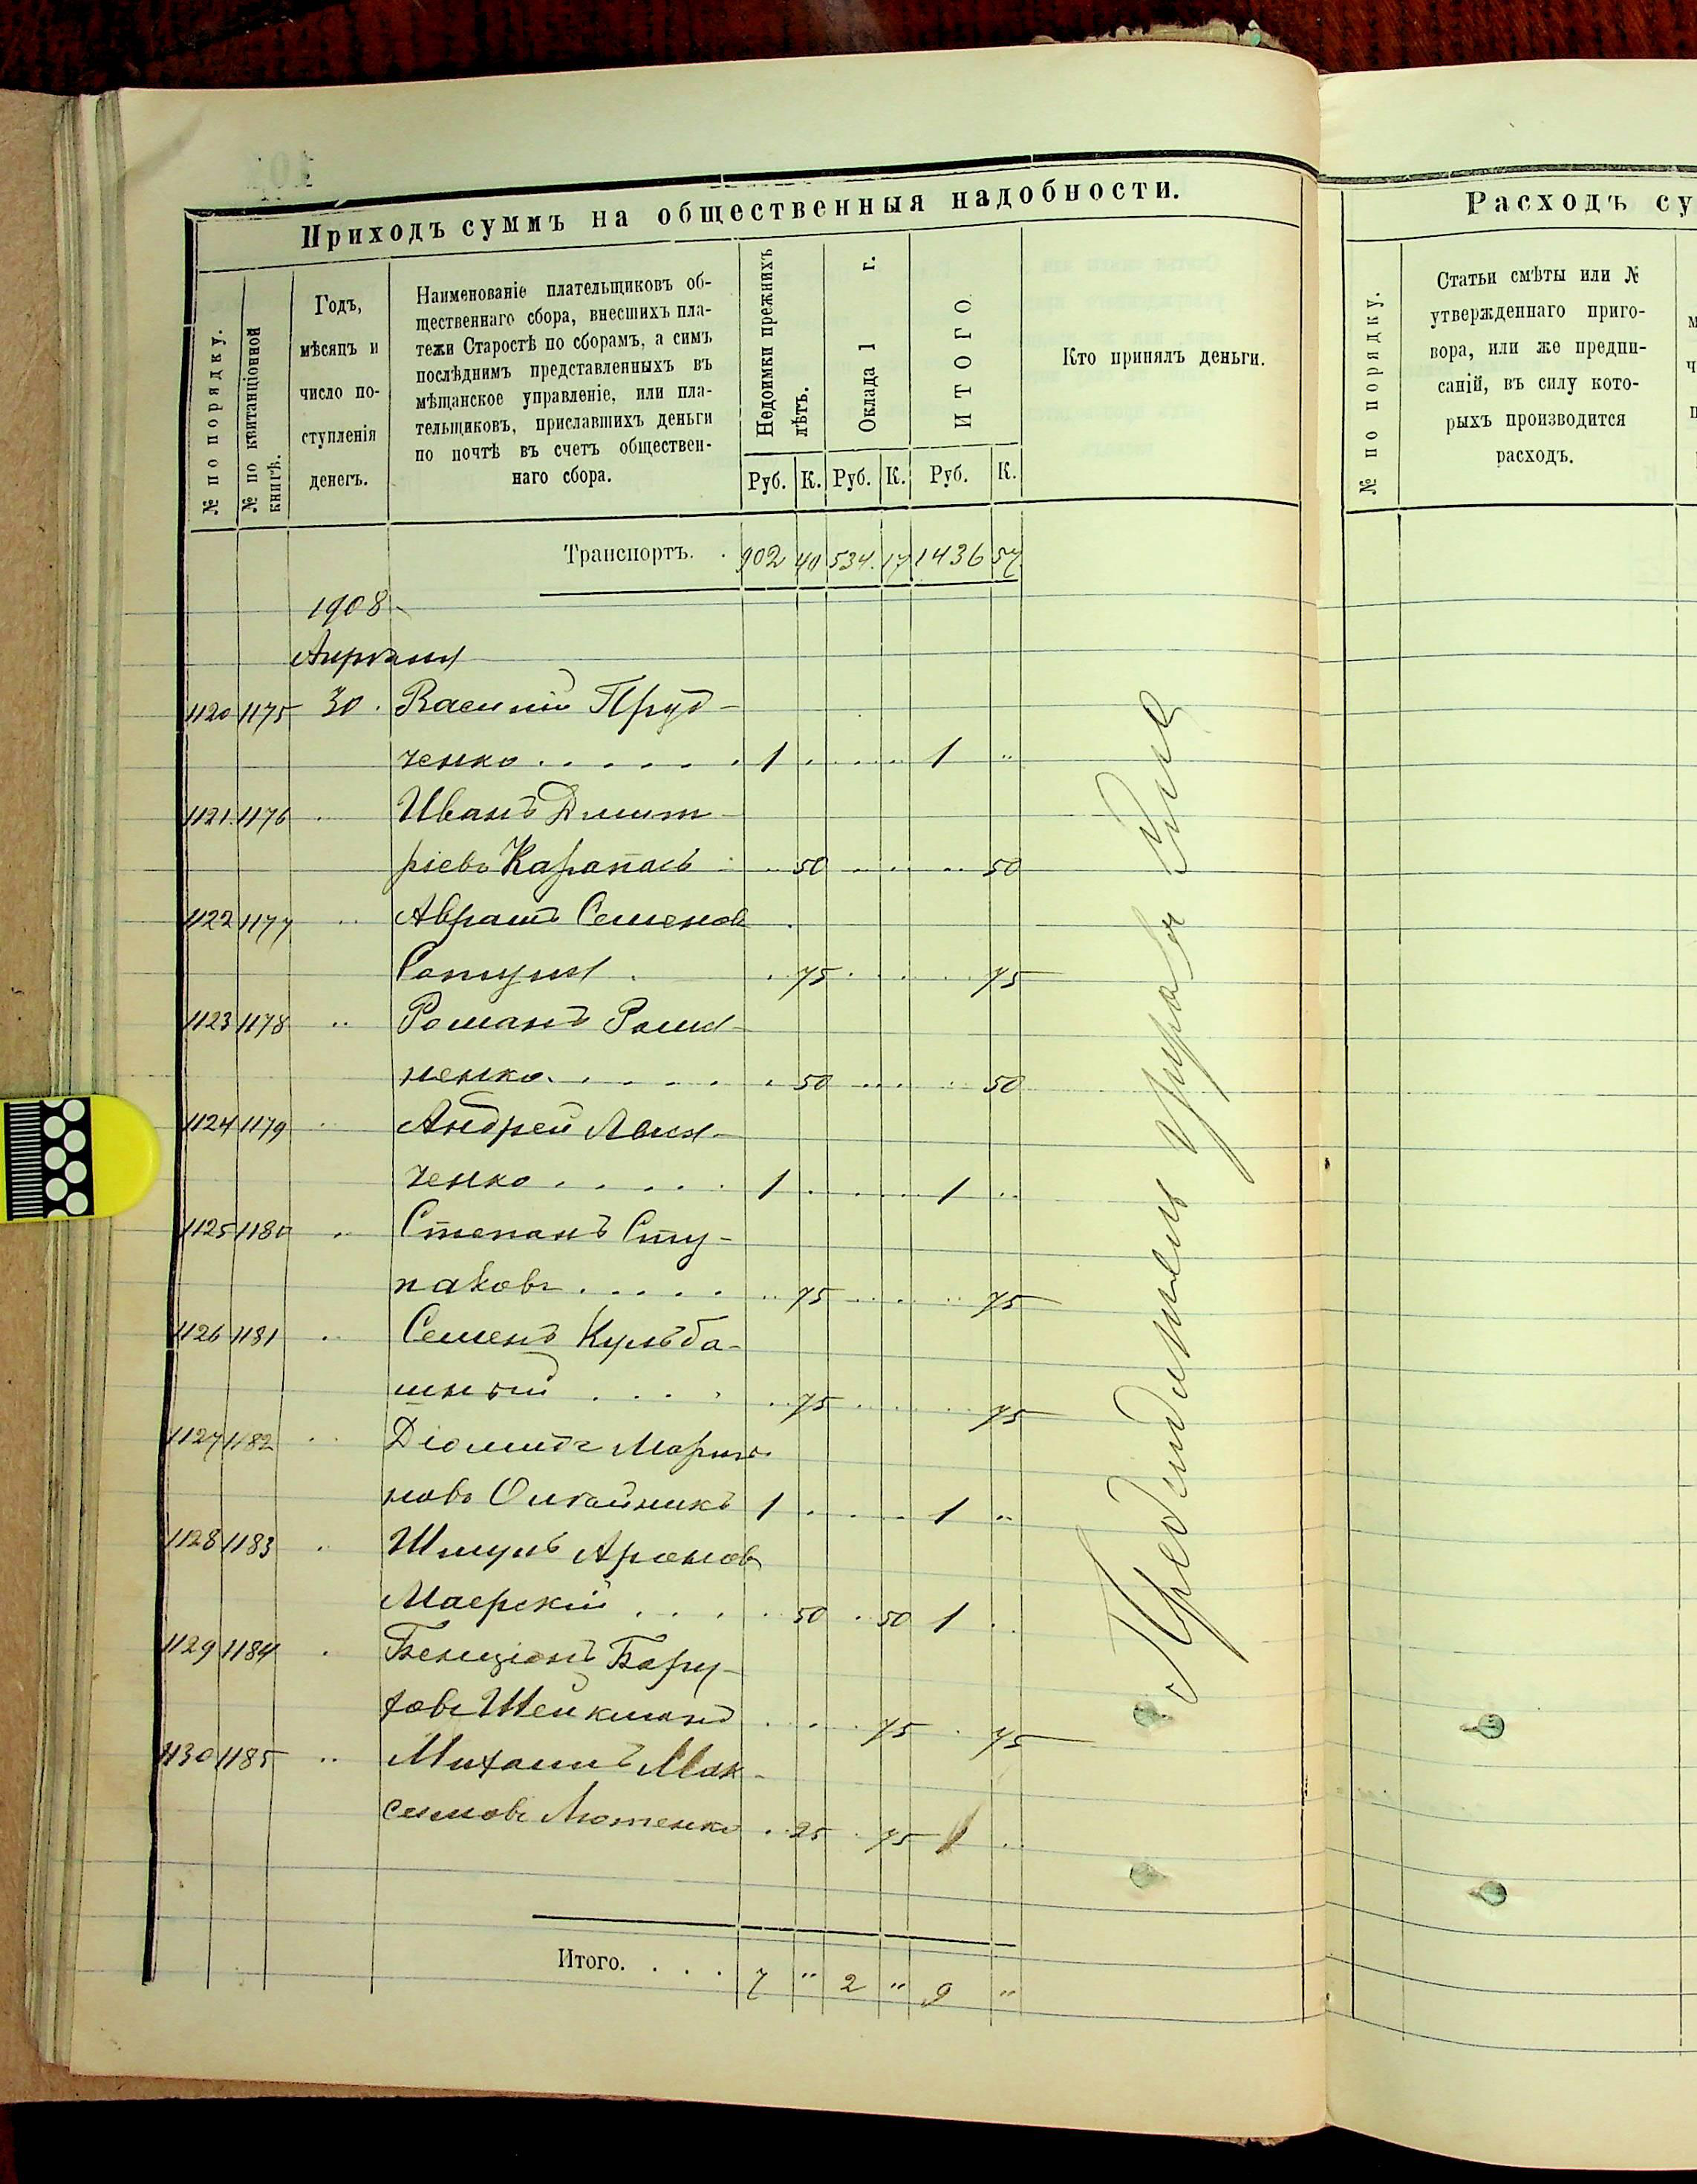 Приходъ суммъ на общественныя надобности.
№ по порядку.
№ по квитанціонной
книгѣ.
Годъ,
мѣсяцъ и
число по-
ступленія
денегъ.
Наименованіе плательщиковъ об-
щественнаго сбора, внесшихъ пла-
тежи Старостѣ по сборамъ, а симъ
послѣднимъ представленныхъ въ
мѣщанское управленіе, или пла-
тельщиковъ, приславшихъ деньги
по почтѣ въ счетъ обществен-
наго сбора.
Недоимки прежнихъ
лѣтъ.
Оклада 1 г.
ИТОГО
Кто принялъ деньги.
Руб. К. Руб. К. Руб. К.
Транспортъ. . 902 40 534. 17 1436 57
1908
Апрѣля
1120 1175 30. Василій Пруд-
ченко . . . . . . 1 . . . . . 1 "
1121. 1176 " Иванъ Дмит-
ріевъ Карапасъ . " 50 " " " " 50
1122 1177 " Аврамъ Семенов
. 75 . . . . 75
1123 1178 " Романъ Рома-
ненко. . . . . . . 50 . . . . 50
1124 1179 " Андрей
ченко . . . . . 1 . . . . 1 "
1125 1180 " Степанъ Сту-
паковъ . . . . . " 75 . . . " 75
1126 1181 " Семенъ Кульба-
шный . . . . " 75 . . . . 75
1127 1182 " Діомидъ
новъ Олійникъ 1 . . . . 1 "
1128 1183 " Шмуль Ароновъ
Маерскій . . . . 50 . 50 1 . .
1129 1184 " Бенціонъ Бору-
ховъ Шейкманъ . . . 75 . 75
1130 1185 " Михаилъ Мак-
симовъ Лютенко . 25 . 75 1 . .
Итого. . . . 7 " 2 " 9 "
Расходъ су
№ по порядку.
Статьи смѣты или №
утвержденнаго приго-
вора, или же предпи-
саній, въ силу кото-
рыхъ производится
расходъ.